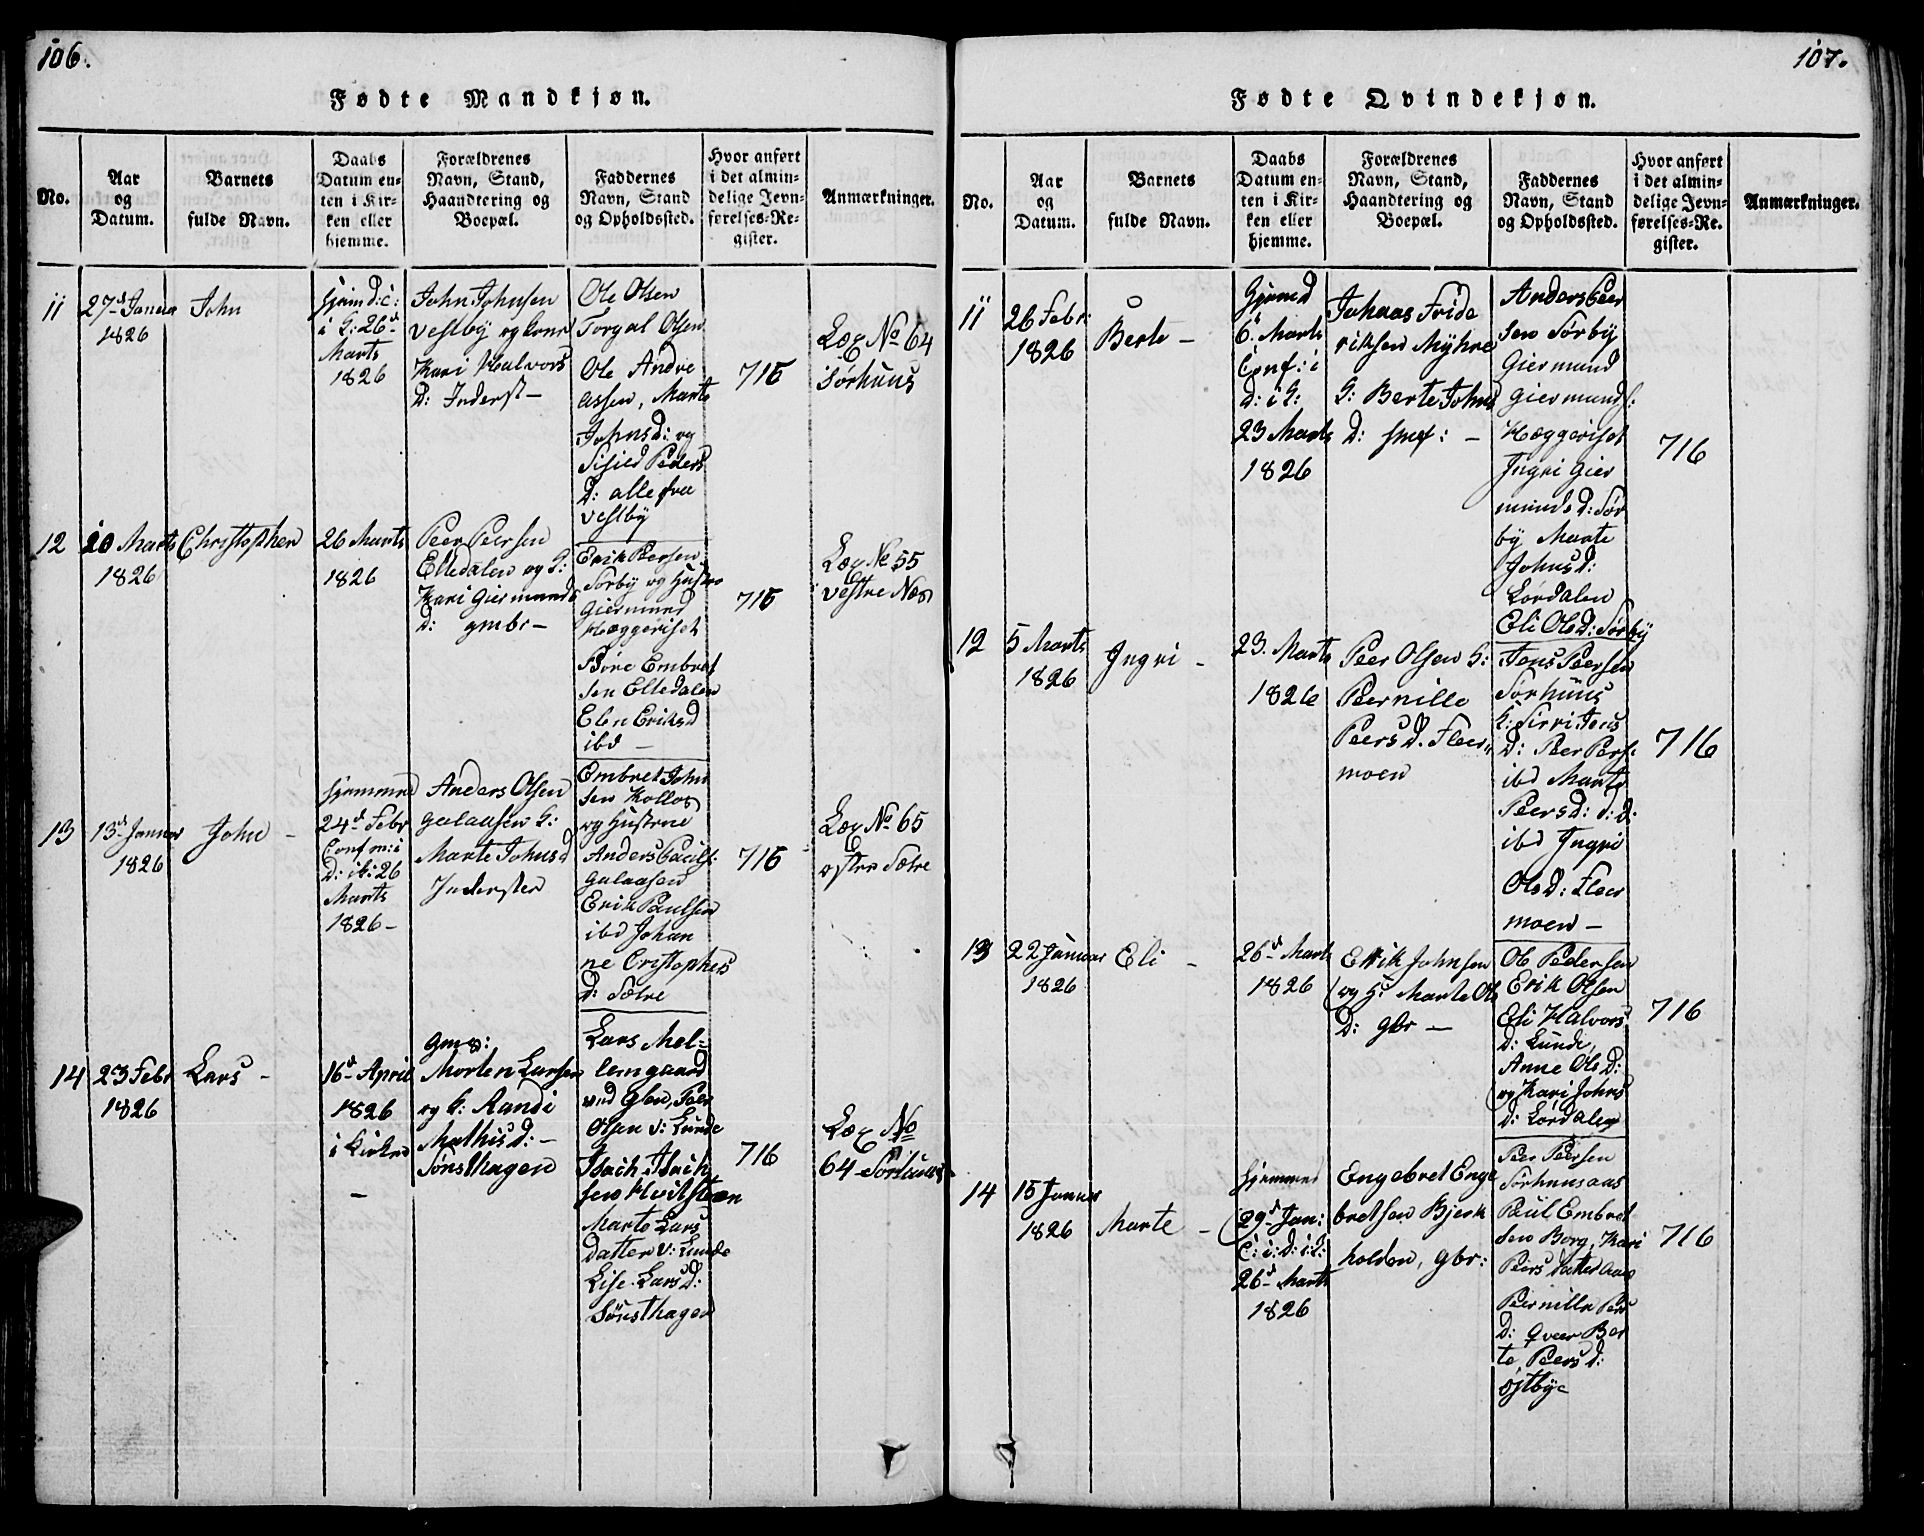 106.
Fødte Mandkjøn.
No.
Aar
og
Datum.
Barnets
fulde Navn.
Daabs
Datum en-
ten i Kir-
ken eller
hjemme.
Forældrenes
Navn, Stand,
Haandtering og
Boepæl.
Faddernes
Navn, Stand
og Opholdssted.
Hvor anført
i det almin-
delige Jevn-
førelses-Re-
gister.
Anmærkninger.
11
27d Janua
1826
John
hjem d: c:
i K: 26d
Marts
1826
John Johnsen
Vestby og kone
Kari Halvors
D: Inderst -
Ole Olsen
Torgal Olsen
Ole Andre
assen, Marte
Johnsd: og
Sisied Peders
D: alle fra
Vestby
715
Læg No 64
Sørhuus
12
20 Marts
1826
Christopher
26 Marts
1826
Peer Peersen
Elledalen og K:
Kari Giermunds
D: gmbr -
Erik Peersen
Sørby og Hustro
Giermund
Hæggeriset
Børe Embret
sen Elledalen
Elen Eriksd
ibd -
715
Læg No 55
Vestre Næs
13
13d Januar
1826
John -
hjemmed
24d Febr
Conf m: i
D: i k: 26
Marts
1826 -
Anders Olsen
Galaasen K:
Marte Johnsd
Inderster
Embret John
sen Kollos
og Hustrue
Anders Pauls:
Galaasen
Erik Paulsen
ibd Johan
ne Cristophers
D: Sætre
715
Læg No 65
østre Sætre
14
23 Febr
1826
Lars -
16d April
1826
i Kirken
-
Gmg:
Morten Larsen
og K: Randi
Mathisd: -
Sønsthagen
Lars Mel-
lemgaard
ved Glen, Peer
Olsen v: Lunde
Isach Isach
sen Hvilsteen
Marte Lars
datter v: Lunde
Lise Larsd:
Sønsthagen
716
Læg No
64 Sørhuus
107.
Fødte Qvindekjøn.
No.
Aar
og
Datum.
Barnets
fulde Navn.
Daabs
Datum en-
ten i Kir-
ken eller
hjemme.
Forældrenes
Navn, Stand,
Haandtering og
Boepæl.
Faddernes
Navn, Stand
og Opholdssted.
Hvor anført
i det almin-
delige Jevn-
førelses-Re-
gister.
Anmærkninger.
11
26 Febr:
1826
Berte -
hjemmd
6d Marts
Conf: i
D: i K:
23 Marts
1826
Johnas Fride
riksen Myhre
K: Berte Johns
D: -
Anders Peer
sen Sørby
Giermund
Giermunds:
Hæggeriset
Ingri Gier
munds D: Sør
by Marte
Johnsd:
Lørdalen
Eli Olsd: Sørby
716
12
5 Marts
1826
Ingri -
23. Marts
1826
Peer Olsen K:
Pernille
Peersd. Fleer
moen
Jens Peersen
Sørhuus
K: Sirri Jens
D: Peer Pers:
ibd Marte
Peersd: d: D:
ibd Ingri
Olsd: Fleer
moen -
716
13
22 Januar
1826
Eli -
26d Marts
1826
Erik Johnsen
og K: Marte Ols
D: gbr -
Ole Pedersen
Erik Olsen
Eli Halvors
D: Lunde,
Anne Ols D:
og Kari Johns
D: Lørdalen
716
14
15 Januar
1826
Marte -
hjemmed
29d Jan:
C: i: D: i: k:
26d Marts
1826
Engebret Enge
bretsen Bjerk
holden, gbr:
Peer Peersen
Sørhuusaas
Paul Embret
sen Borg, Kari
Peers datter Aas
Peernille Peers
D: Qveer Ber
te Peersd:
østbye
716